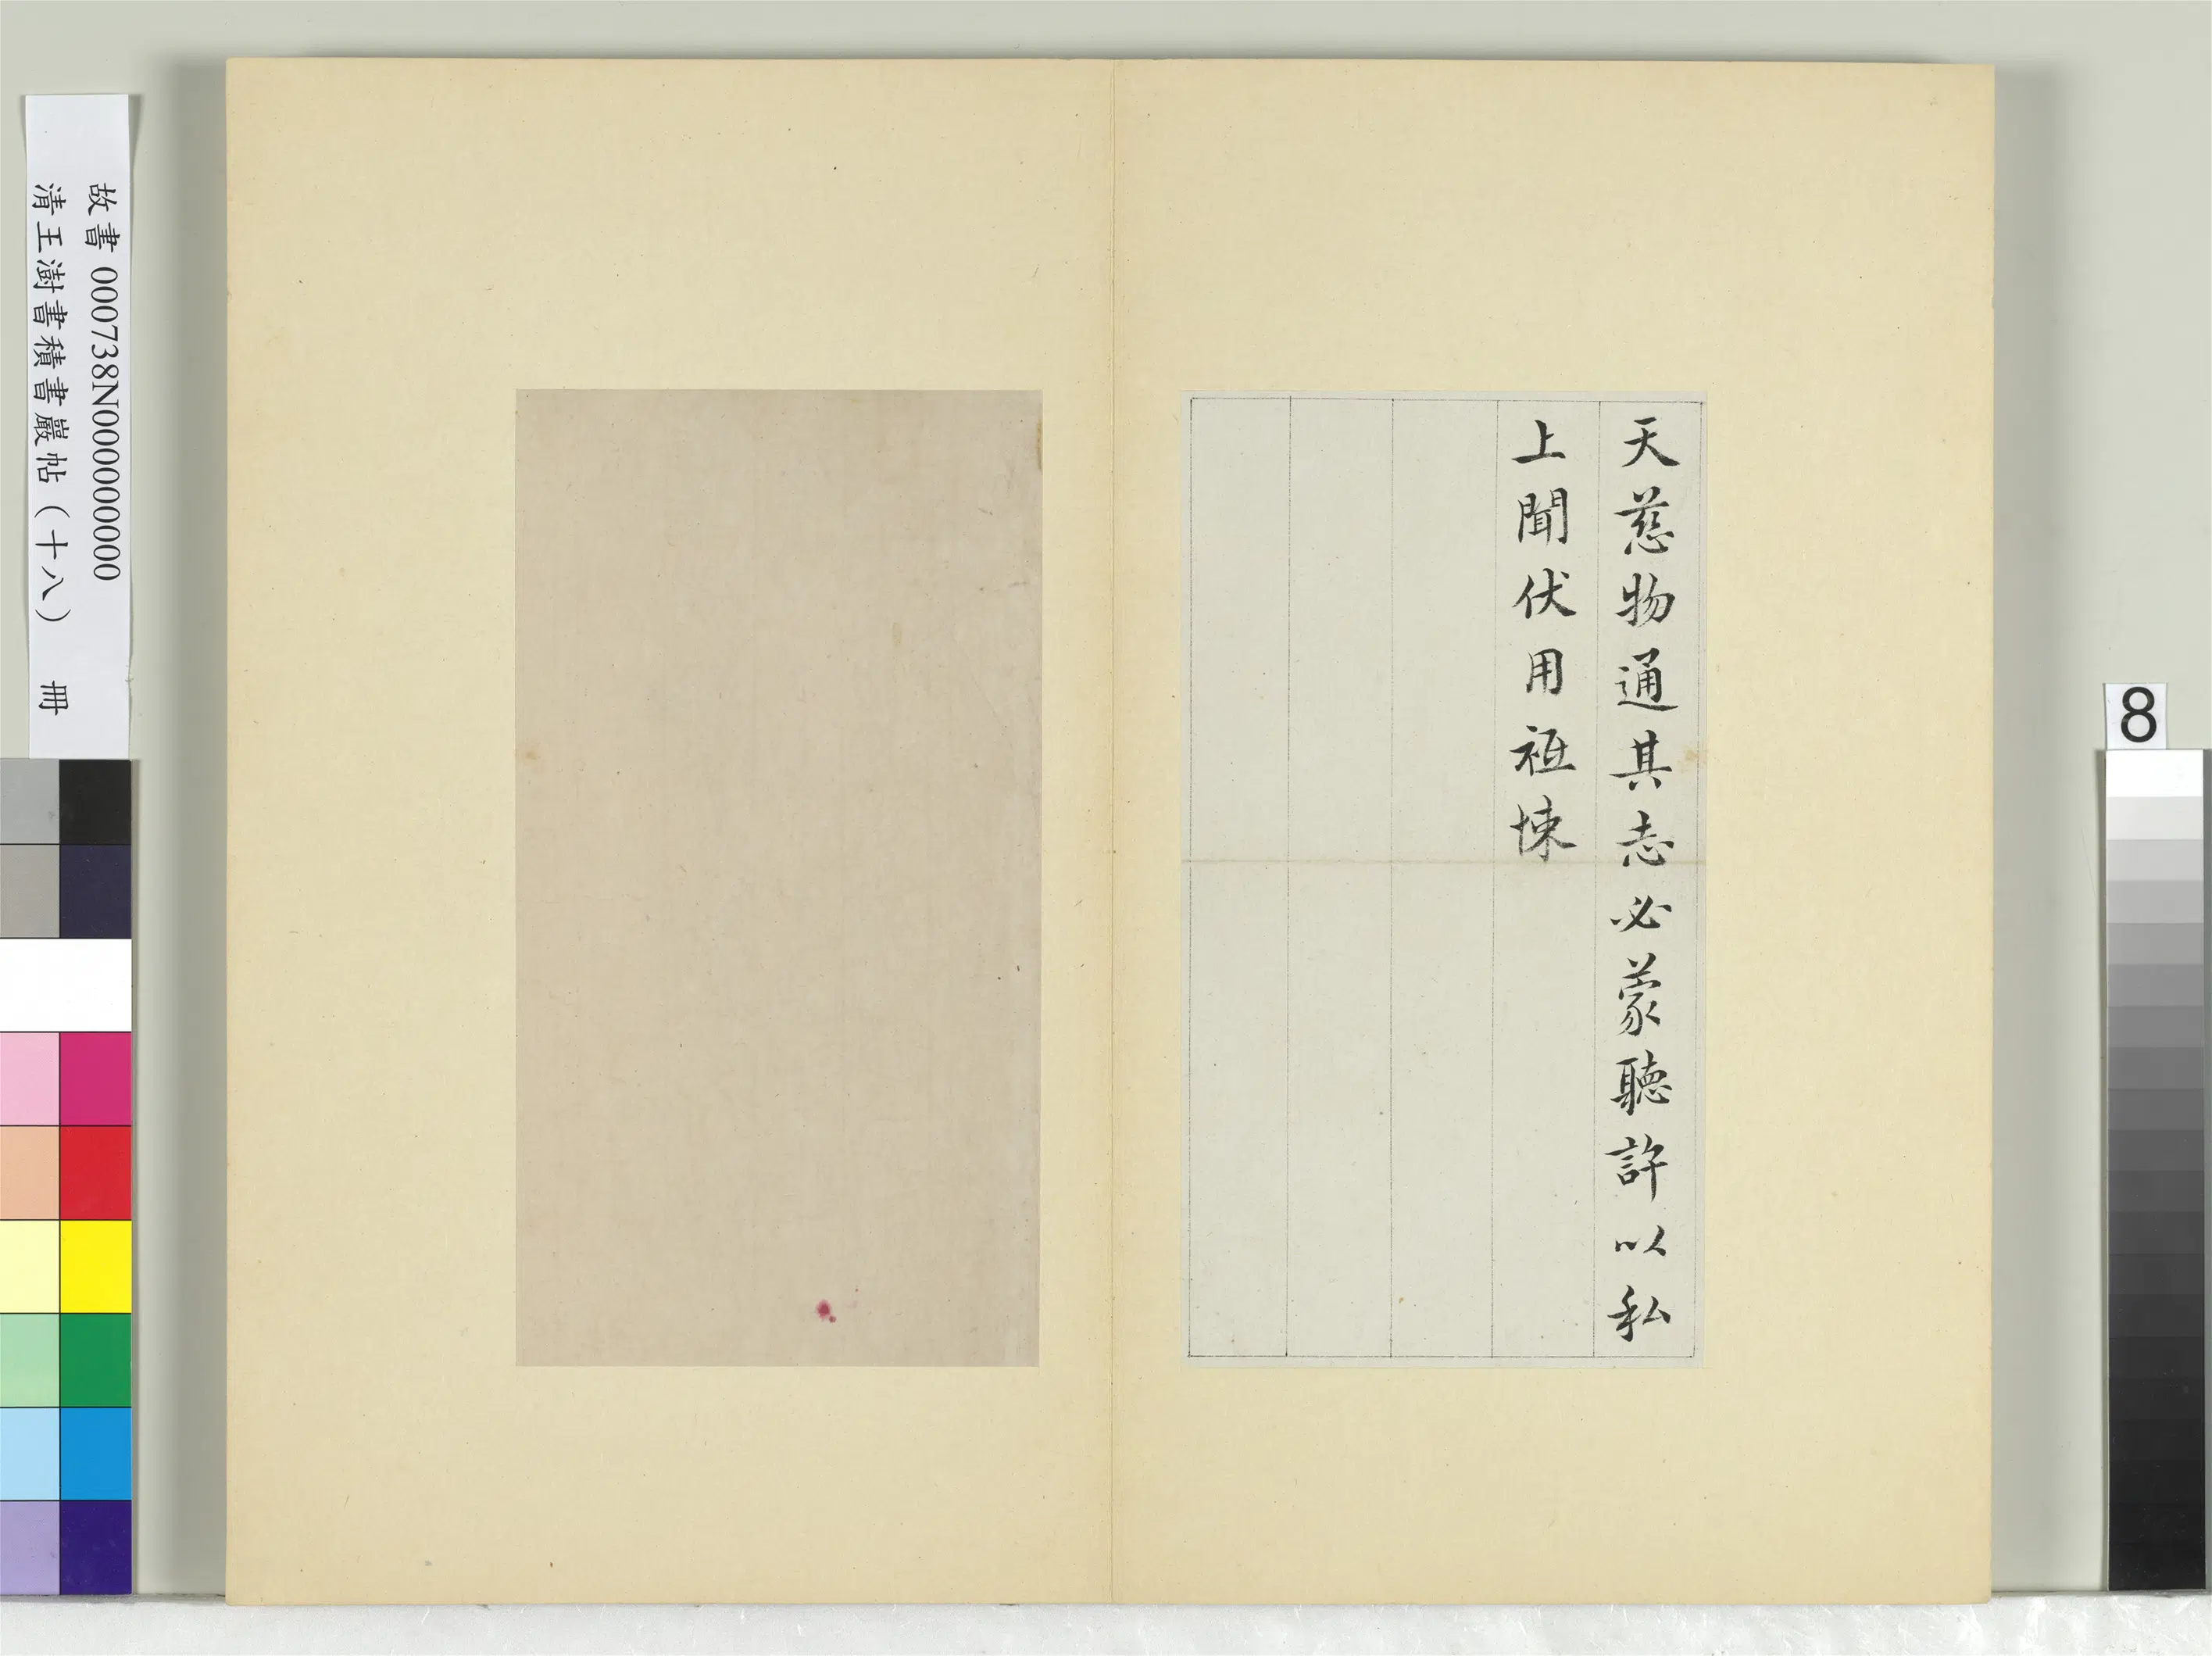 天慈物通其志必蒙聽許以私
上聞伏用祗悚
故書 000738N000000000
清王澍書積書巖帖(十八) 冊
8